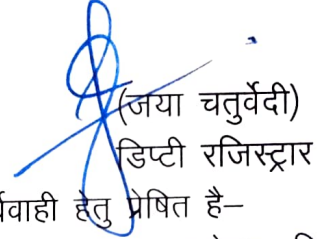 (जया चतुर्वेदी)
डिप्टी रजिस्ट्रार
हेतु प्रेषित है–